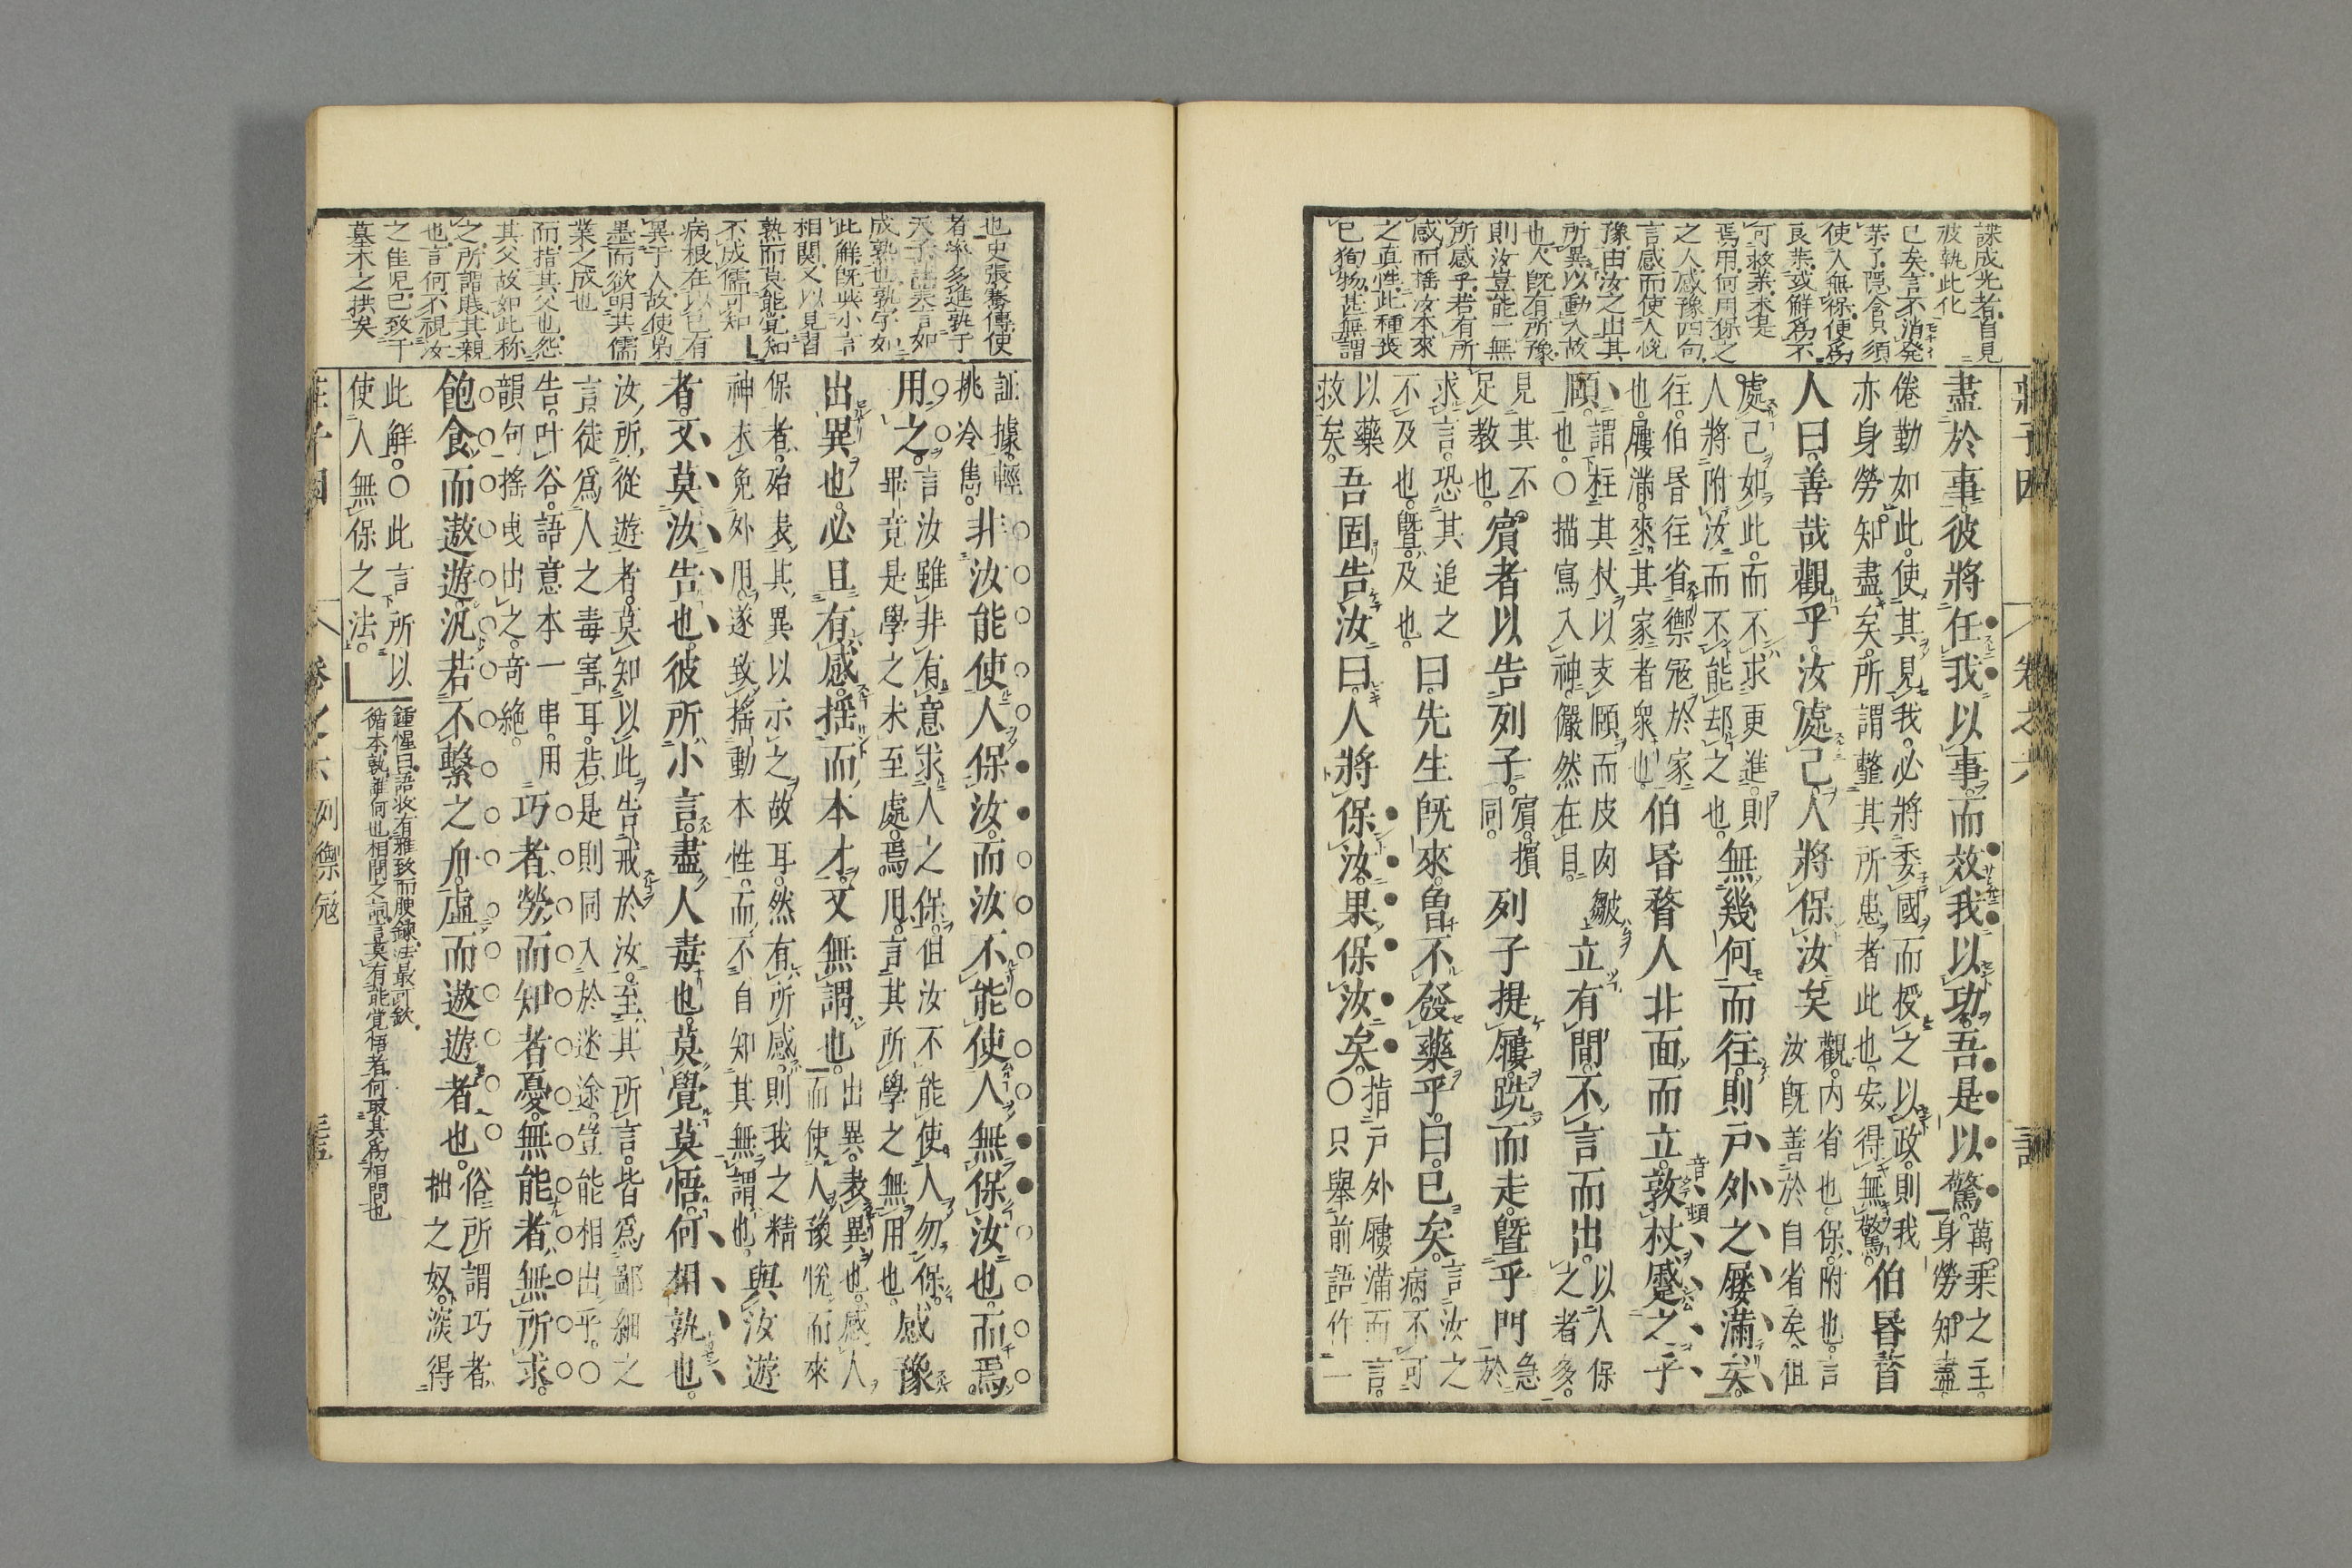 誄成光者自見
彼執此化
已矣言不消発
葉了隠含只須
使人無保便爲
良葉或解爲不
可将葉來是
焉用何用保之
之人感豫四句
言感而使人悅
豫由汝之出其
所異以動人故
也人既有所豫
則汝豈能一無
所感乎若有所
感而搖汝本來
之真性此種喪
已狥物甚無謂
卷之六
盡於事。彼將任我以事。而效我以功。吾是以驚。
萬乘之主。
身勞知盡
倦勤如此。使其見我。必將委國而授之以政。則我
亦身勞知盡矣。所謂整其所患者此也。安得無驚。
伯昬瞀
人曰。善哉觀乎。汝處己。人將保汝矣
觀。內省也。保。附也。言
汝既善於自省矣。徂
處己如此。而不求更進。則
人將附汝而不能却之也。
無幾何而往。則戶外之屨滿矣。
往。伯昬往省禦寇於家
也。屨滿。來其家者衆也。
伯昬瞀人北面而立。敦杖蹙之乎
音頓
頤。
謂柱其杖以支頤而皮肉皺
也。〇描寫入神。儼然在目。
立有間。不言而出。
以人保
之者多。
見其不
足教也。
賓者以告列子。
賓。擯
同。
列子提屨。跣而走。曁乎門
急
於
求言。恐其追之
不及也。曁。及也。
曰。先生旣來。曾不發藥乎。曰。已矣。
言汝之
病。不可
以藥
救矣。
吾固告汝曰。人將保汝。果保汝矣。
指戶外屨滿而言。
〇只舉前語作一
也史張騫傳使
者率多進孰于
天子註孰言如
成熟也孰字如
此解旣與小言
相関又以見習
熟而莫能覚知
不成儒可知
病根在以己有
異于人故使弟
墨而欲明其儒
業之成也
而指其父也怨
其父故如此称
之所謂賤其親
也言何不視汝
之佳兒已致于
墓木之拱矣
証據。輕
挑冷雋。
非汝能使人保汝。而汝不能使人無保汝也。而焉
用之。
言汝雖非有意求人之保。但汝不能使人勿保。
畢竟是學之未至處。焉用。言其所學之無用也。
感豫
出異也。必且有感。搖而本才。又無謂也。
出異。表異也。感人
而使人豫悅而來
保者。殆表其異以示之故耳。然有所感。則我之精
神未免外用。遂致搖動本性。而不自知其無謂也。
與汝遊
者。又莫汝告也。彼所小言。盡人毒也。莫覺莫悟。何相孰也。
汝所從遊者。莫知以此告戒於汝。至其所言。皆爲鄙細之
言。徒爲人之毒害耳。若是則同入於迷途。豈能相出乎。〇
告。叶谷。語意本一串。用
韻何搖曳出之。奇絕。
巧者勞而知者憂。無能者無所求。
飽食而遨遊。汎若不繫之舟。虛而遨遊者也。
俗所謂巧者。
拙之奴。深得
此解。〇此言所以
使人無保之法。
鍾惺曰語坆有雅致而腴錬法最可欽
循本孰誰何也相問之詞言莫有能覚悟者何取其爲相問也
莊子因 卷之六 列禦寇